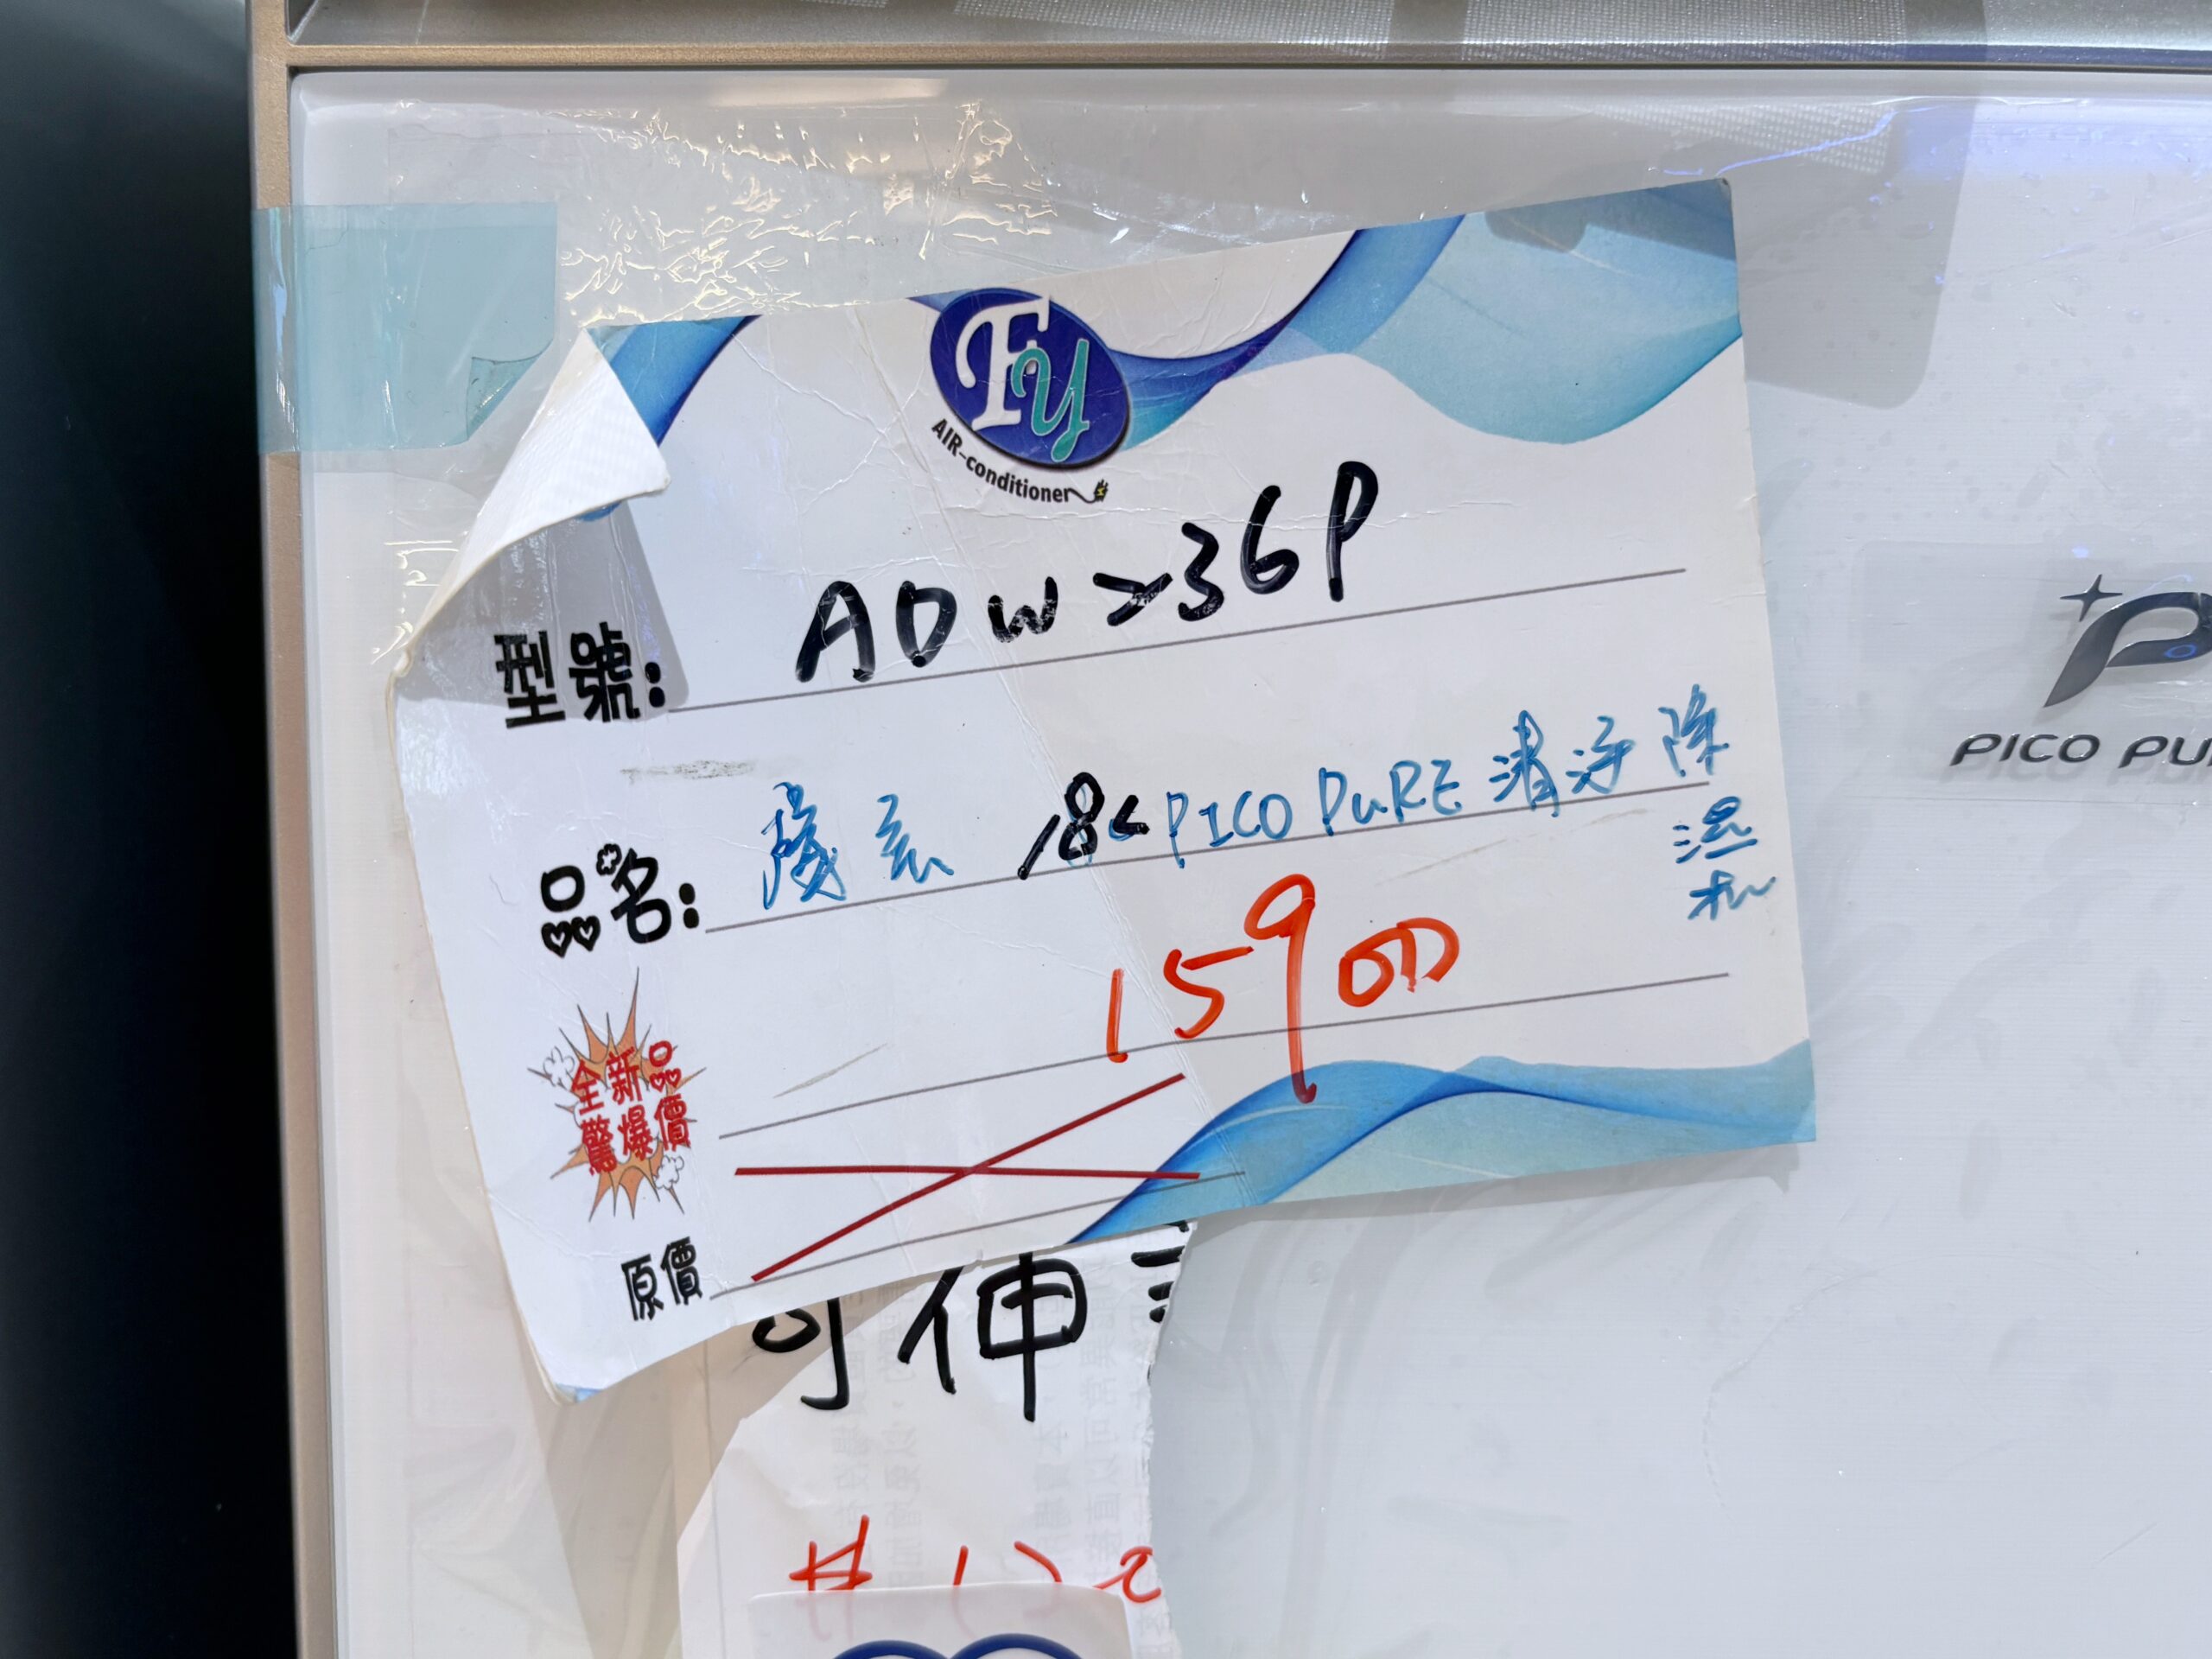 FY
AIR-conditioner
型號: ADW236P
品名: 慶宏 18L PICO PURE 清淨除
濕机
15900
全新品
驚爆價
原價
可伸
PICO PU